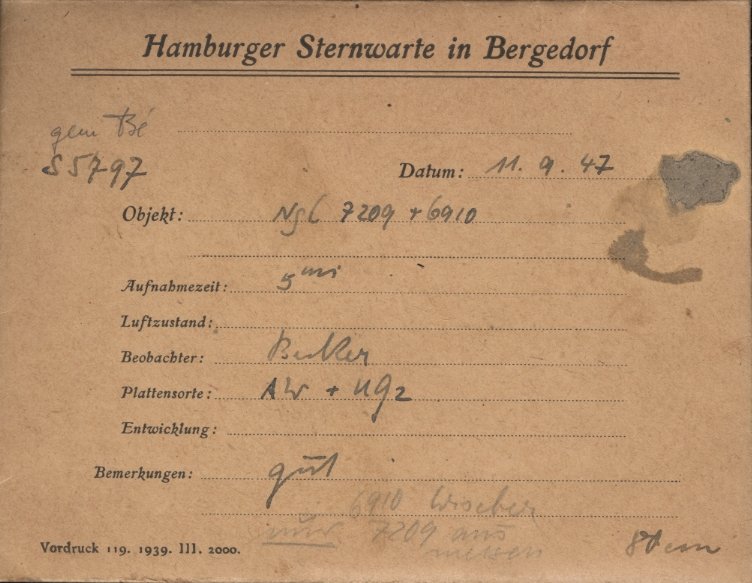 Hamburger Sternwarte in Bergedorf
gem Bé
S5797
Datum: 11. 9. 47
Objekt: NgC 7209 + 6910
Aufnahmezeit: 5 min
Luftzustand:
Beobachter: Becker
Plattensorte: AW + UG2
Entwicklung:
Bemerkungen: gut
6910
nur 7209 aus
messen
Vordruck 119. 1939. III. 2000.
80 cm